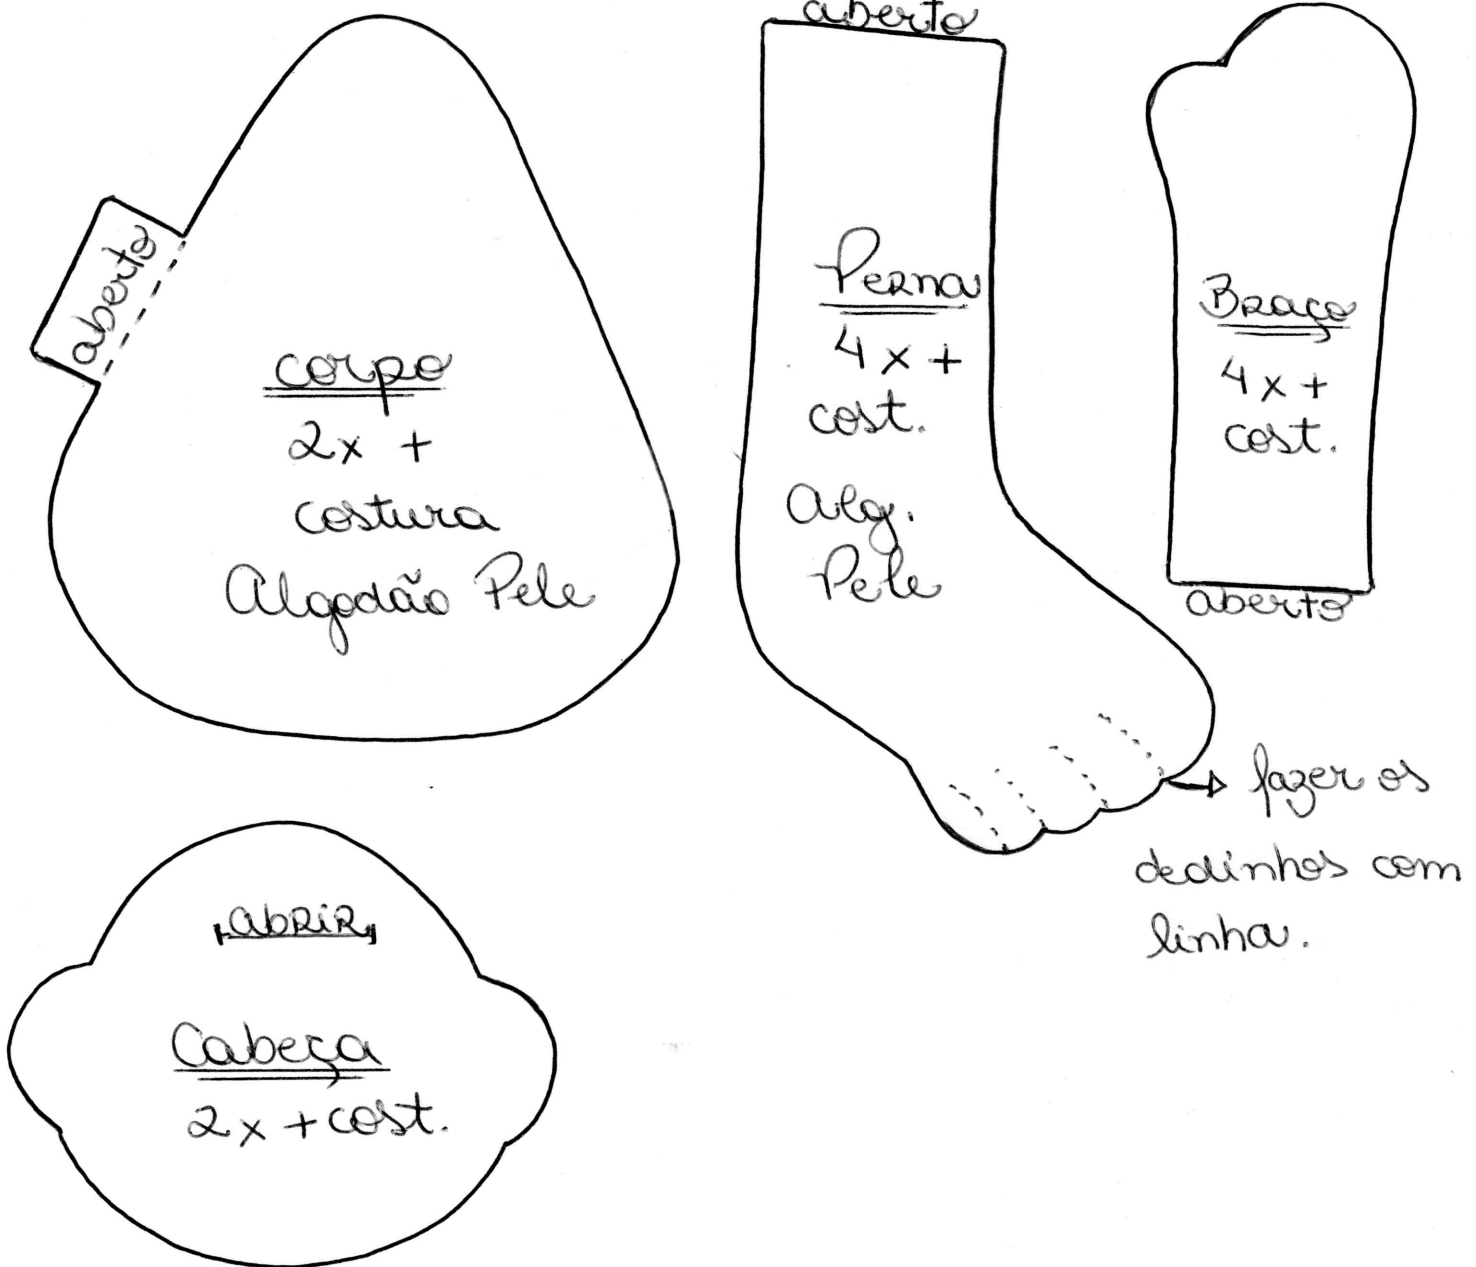 aberto
corpo
2x +
costura
Algodão Pele
aberto
Perna
4x +
cost.
Alg.
Pele
Braço
4x +
cost.
aberto
fazer os
dedinhos com
linha.
abrir
Cabeça
2x + cost.